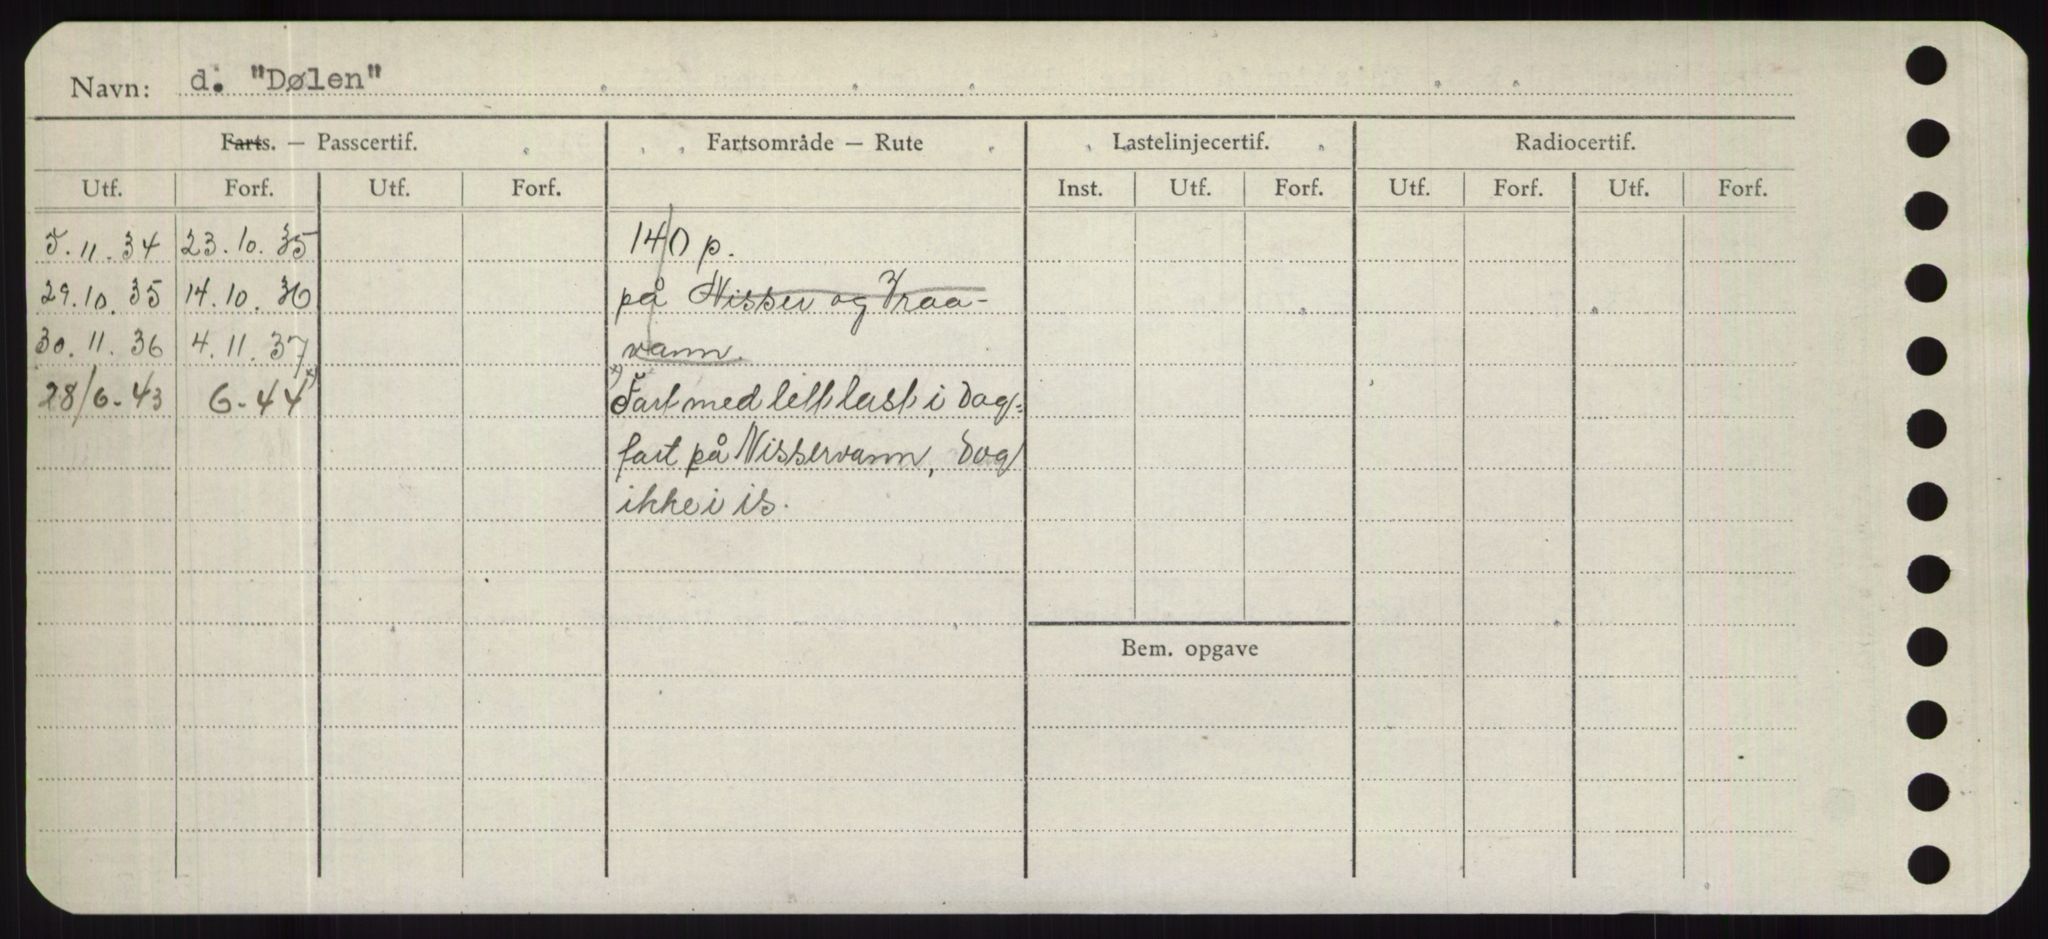 Navn: d. "Dølen"
Farts. — Passcertif. Fartsområde — Rute Lastelinjecertif. Radiocertif.
Utf. Forf. Utf. Forf. Inst. Utf. Forf. Utf. Forf. Utf. Forf.
5.11.34 23.10.35 140 p.
29.10.35 14.10.36 på Nisser og Vraa-
30.11.36 4.11.37 vann.
28/6-43 6-44 x) x) Fart med lett last i dag-
fart på Nisservann, dog
ikke i is.
Bem. opgave